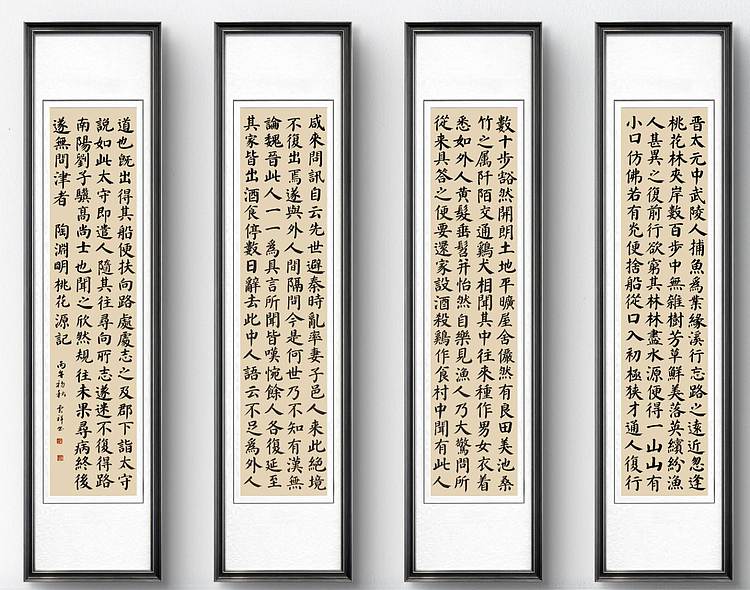 晋太元中武陵人捕魚爲業緣溪行忘路之遠近忽逢
桃花林夾岸數百步中無雜樹芳草鮮美落英繽紛漁
人甚異之復前行欲窮其林林盡水源便得一山山有
小口仿佛若有光便捨船從口入初極狹才通人復行
數十步豁然開朗土地平曠屋舍儼然有良田美池桑
竹之属阡陌交通鷄犬相聞其中往来種作男女衣着
悉如外人黃髮垂髫并怡然自樂見漁人乃大驚問所
從来具答之便要還家設酒殺鷄作食村中聞有此人
咸来問訊自云先世避秦時亂率妻子邑人来此絶境
不復出焉遂與外人間隔問今是何世乃不知有漢無
論魏晋此人一一爲具言所聞皆嘆惋餘人各復延至
其家皆出酒食停數日辭去此中人語云不足爲外人
道也旣出得其船便扶向路處處志之及郡下詣太守
說如此太守即遣人隨其往尋向所志遂迷不復得路
南陽劉子驥髙尚士也聞之欣然規往未果尋病終後
遂無問津者 陶淵明桃花源記 丙午初秋